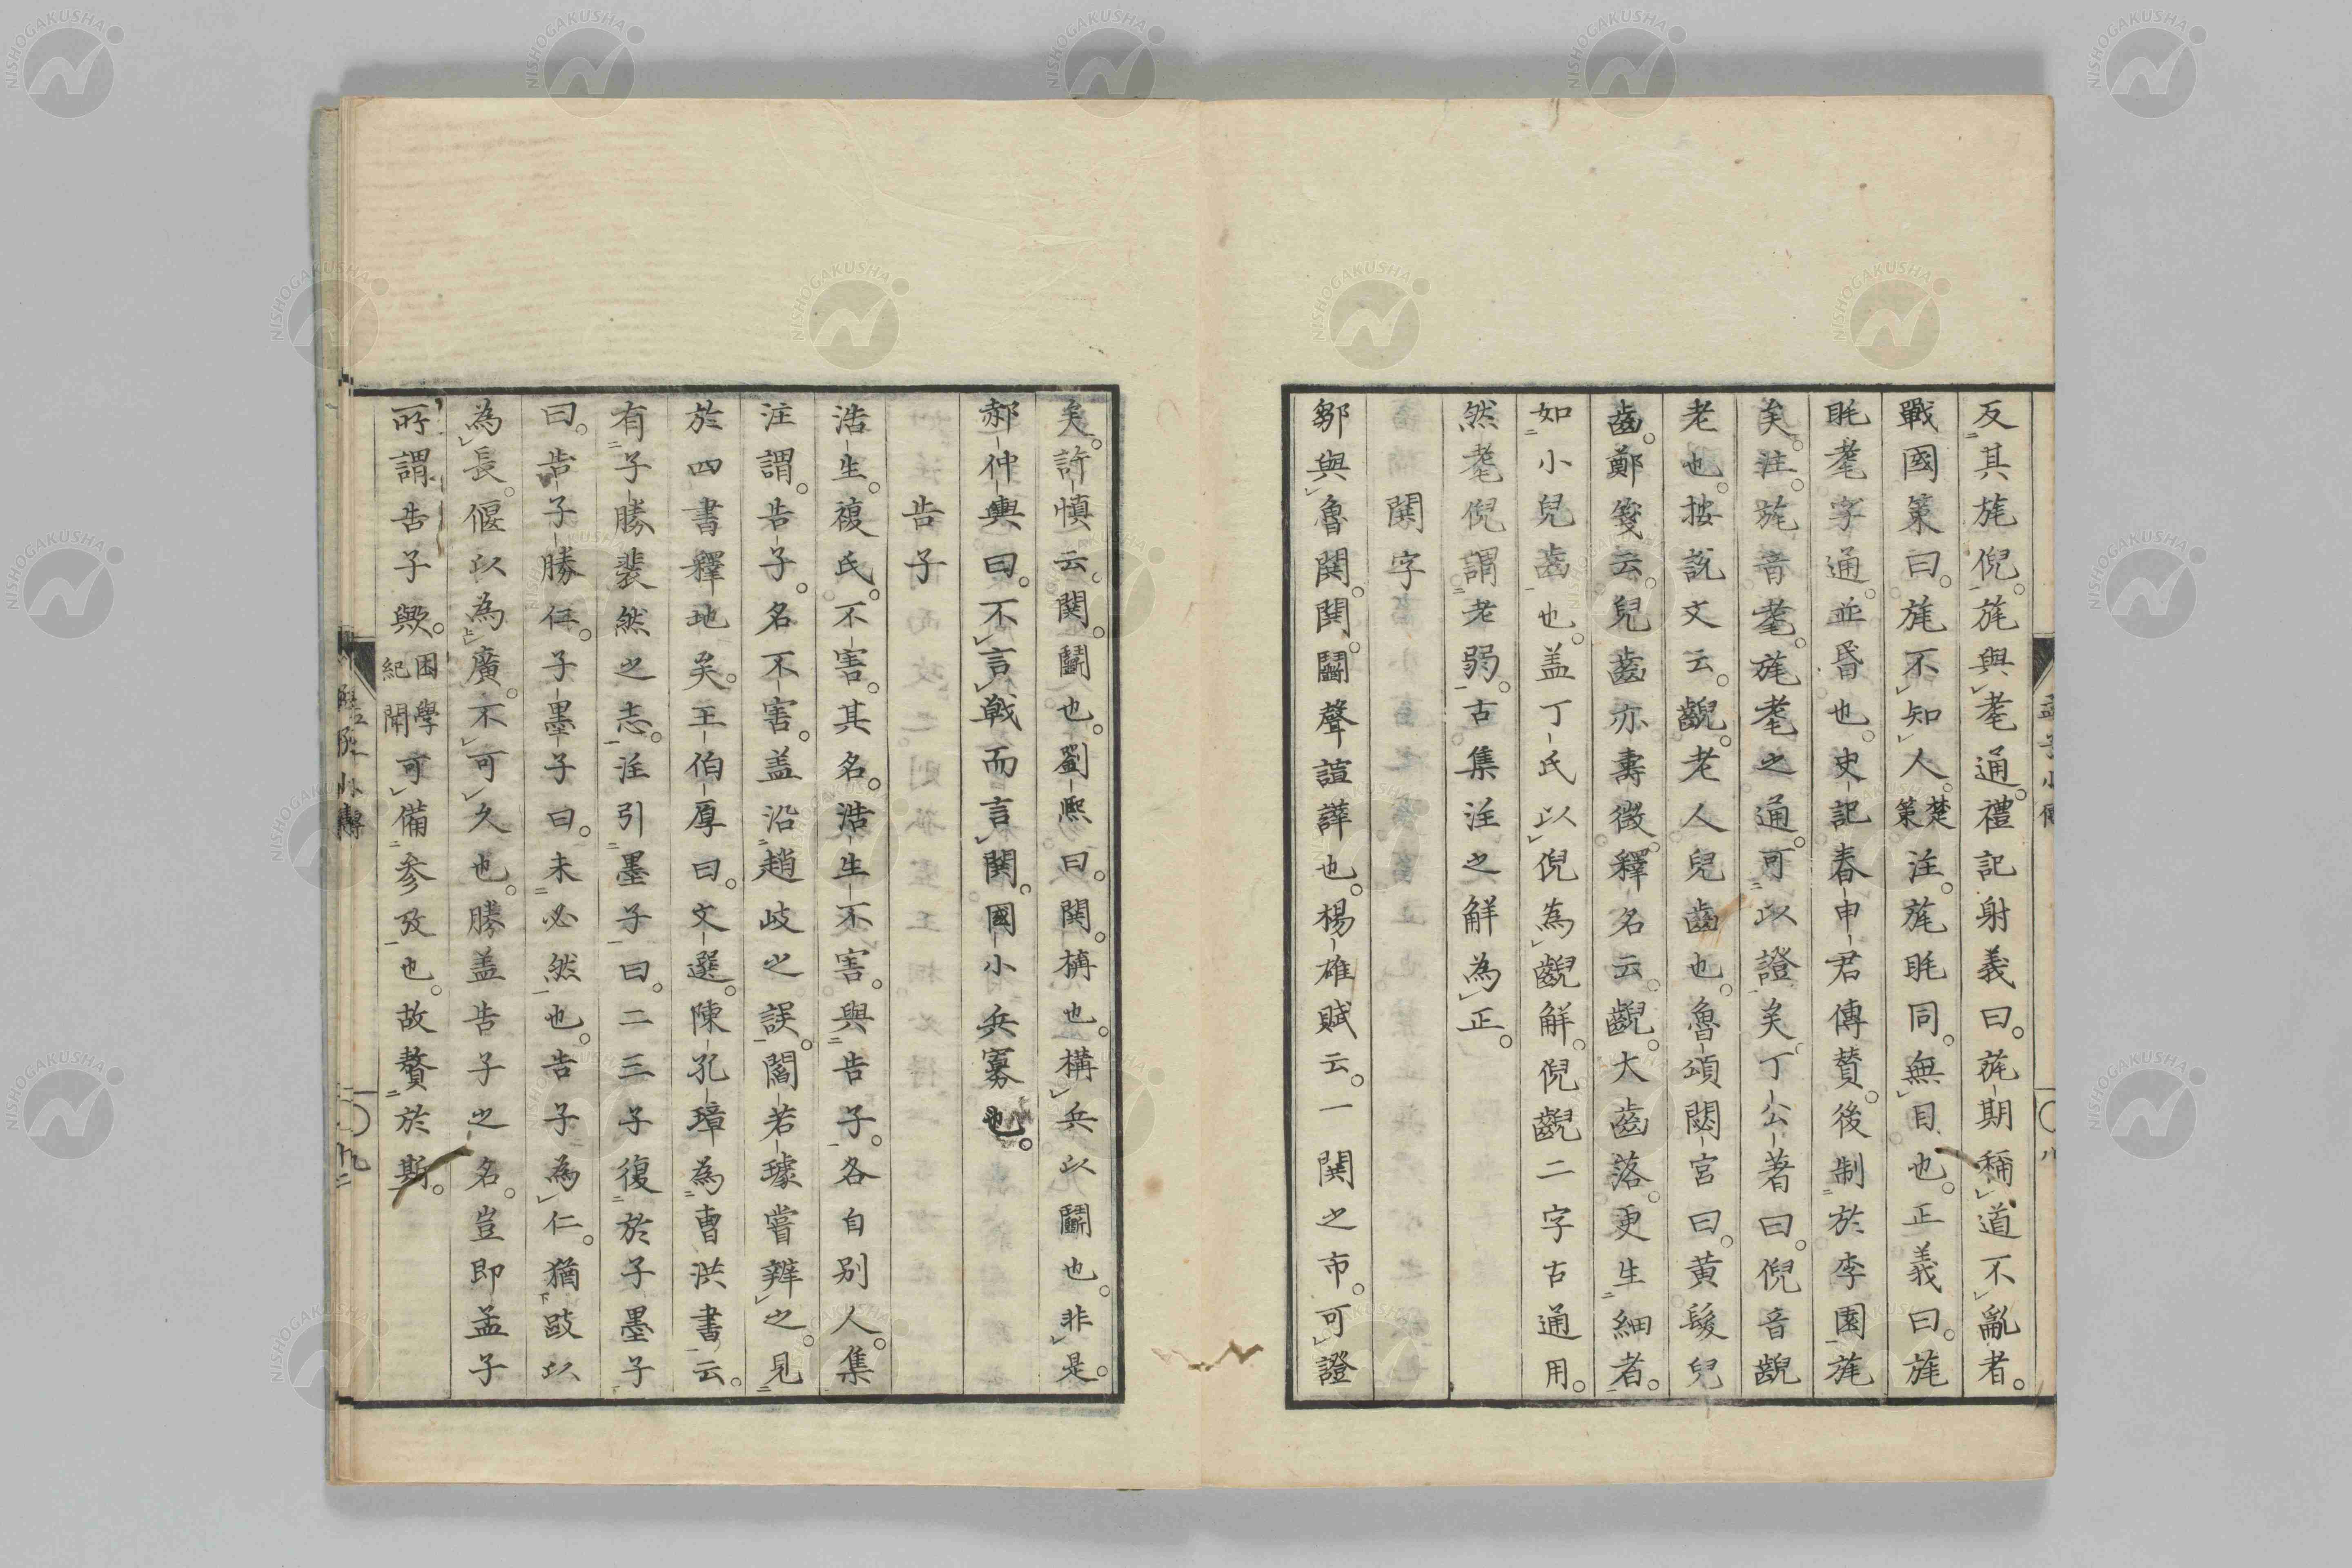 反其旄倪。旄與耄通。禮記射義曰。旄期稱道不亂者。
戰國策曰。旄不知人。楚策注。旄眊同。無目也。正義曰。旄
眊耄字通。並昏也。史記春申君傳贊。後制於李園旄
矣。注。旄音耄。旄耄之通。可以證矣。丁公著曰。倪音齯
老也。按說文云。齯。老人兒齒也。魯頌閟宮曰。黃髮兒
齒。鄭箋云。兒齒亦壽徵。釋名云。齯。大齒落。更生細者。
如小兒齒也。盖丁氏以倪為齯解。倪齯二字古通用。
然耄倪謂老弱。古集注之解為正。
鬨字
鄒與魯鬨。鬨。鬭聲諠譁也。楊雄賦云。一鬨之市。可證
矣。許慎云。鬨。鬭也。劉熙曰。鬨。構也。構兵以鬭也。非是。
郝仲輿曰。不言戰而言鬨。國小兵寡也。
告子
浩生。複氏。不害。其名。浩生不害。與告子。各自別人。集
注謂。告子。名不害。盖沿趙岐之誤。閻若璩嘗辨之。見
於四書釋地矣。王伯厚曰。文選。陳孔璋為曹洪書云。
有子勝裴然之志。注引墨子曰。二三子復於子墨子
曰。告子勝仁。子墨子曰。未必然也。告子為仁。猶跂以
為長。偃以為廣。不可久也。勝盖告子之名。豈即孟子
所謂告子歟。困學紀聞可備參攷也。故贅於斯。
孟子小傳
八
九